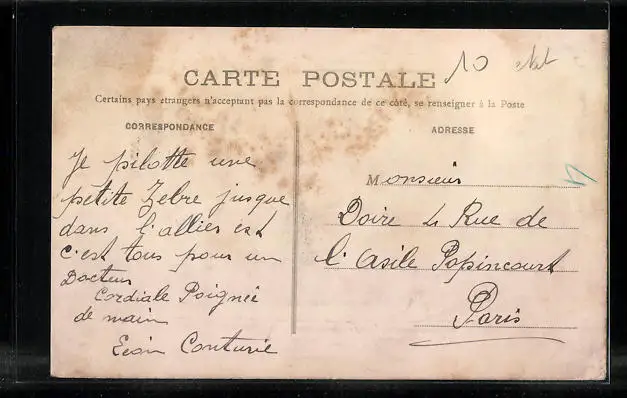 CARTE POSTALE
10
Certains pays étrangers n'acceptant pas la correspondance de ce côté, se renseigner à la Poste
CORRESPONDANCE
Je pilotte une
petite Zebre jusque
dans l'allier est
c'est tous pour un
Docteur
Cordiale Poignée
de main
Couturie
ADRESSE
Monsieur
Doire 4 Rue de
l'Asile Popincourt
Paris